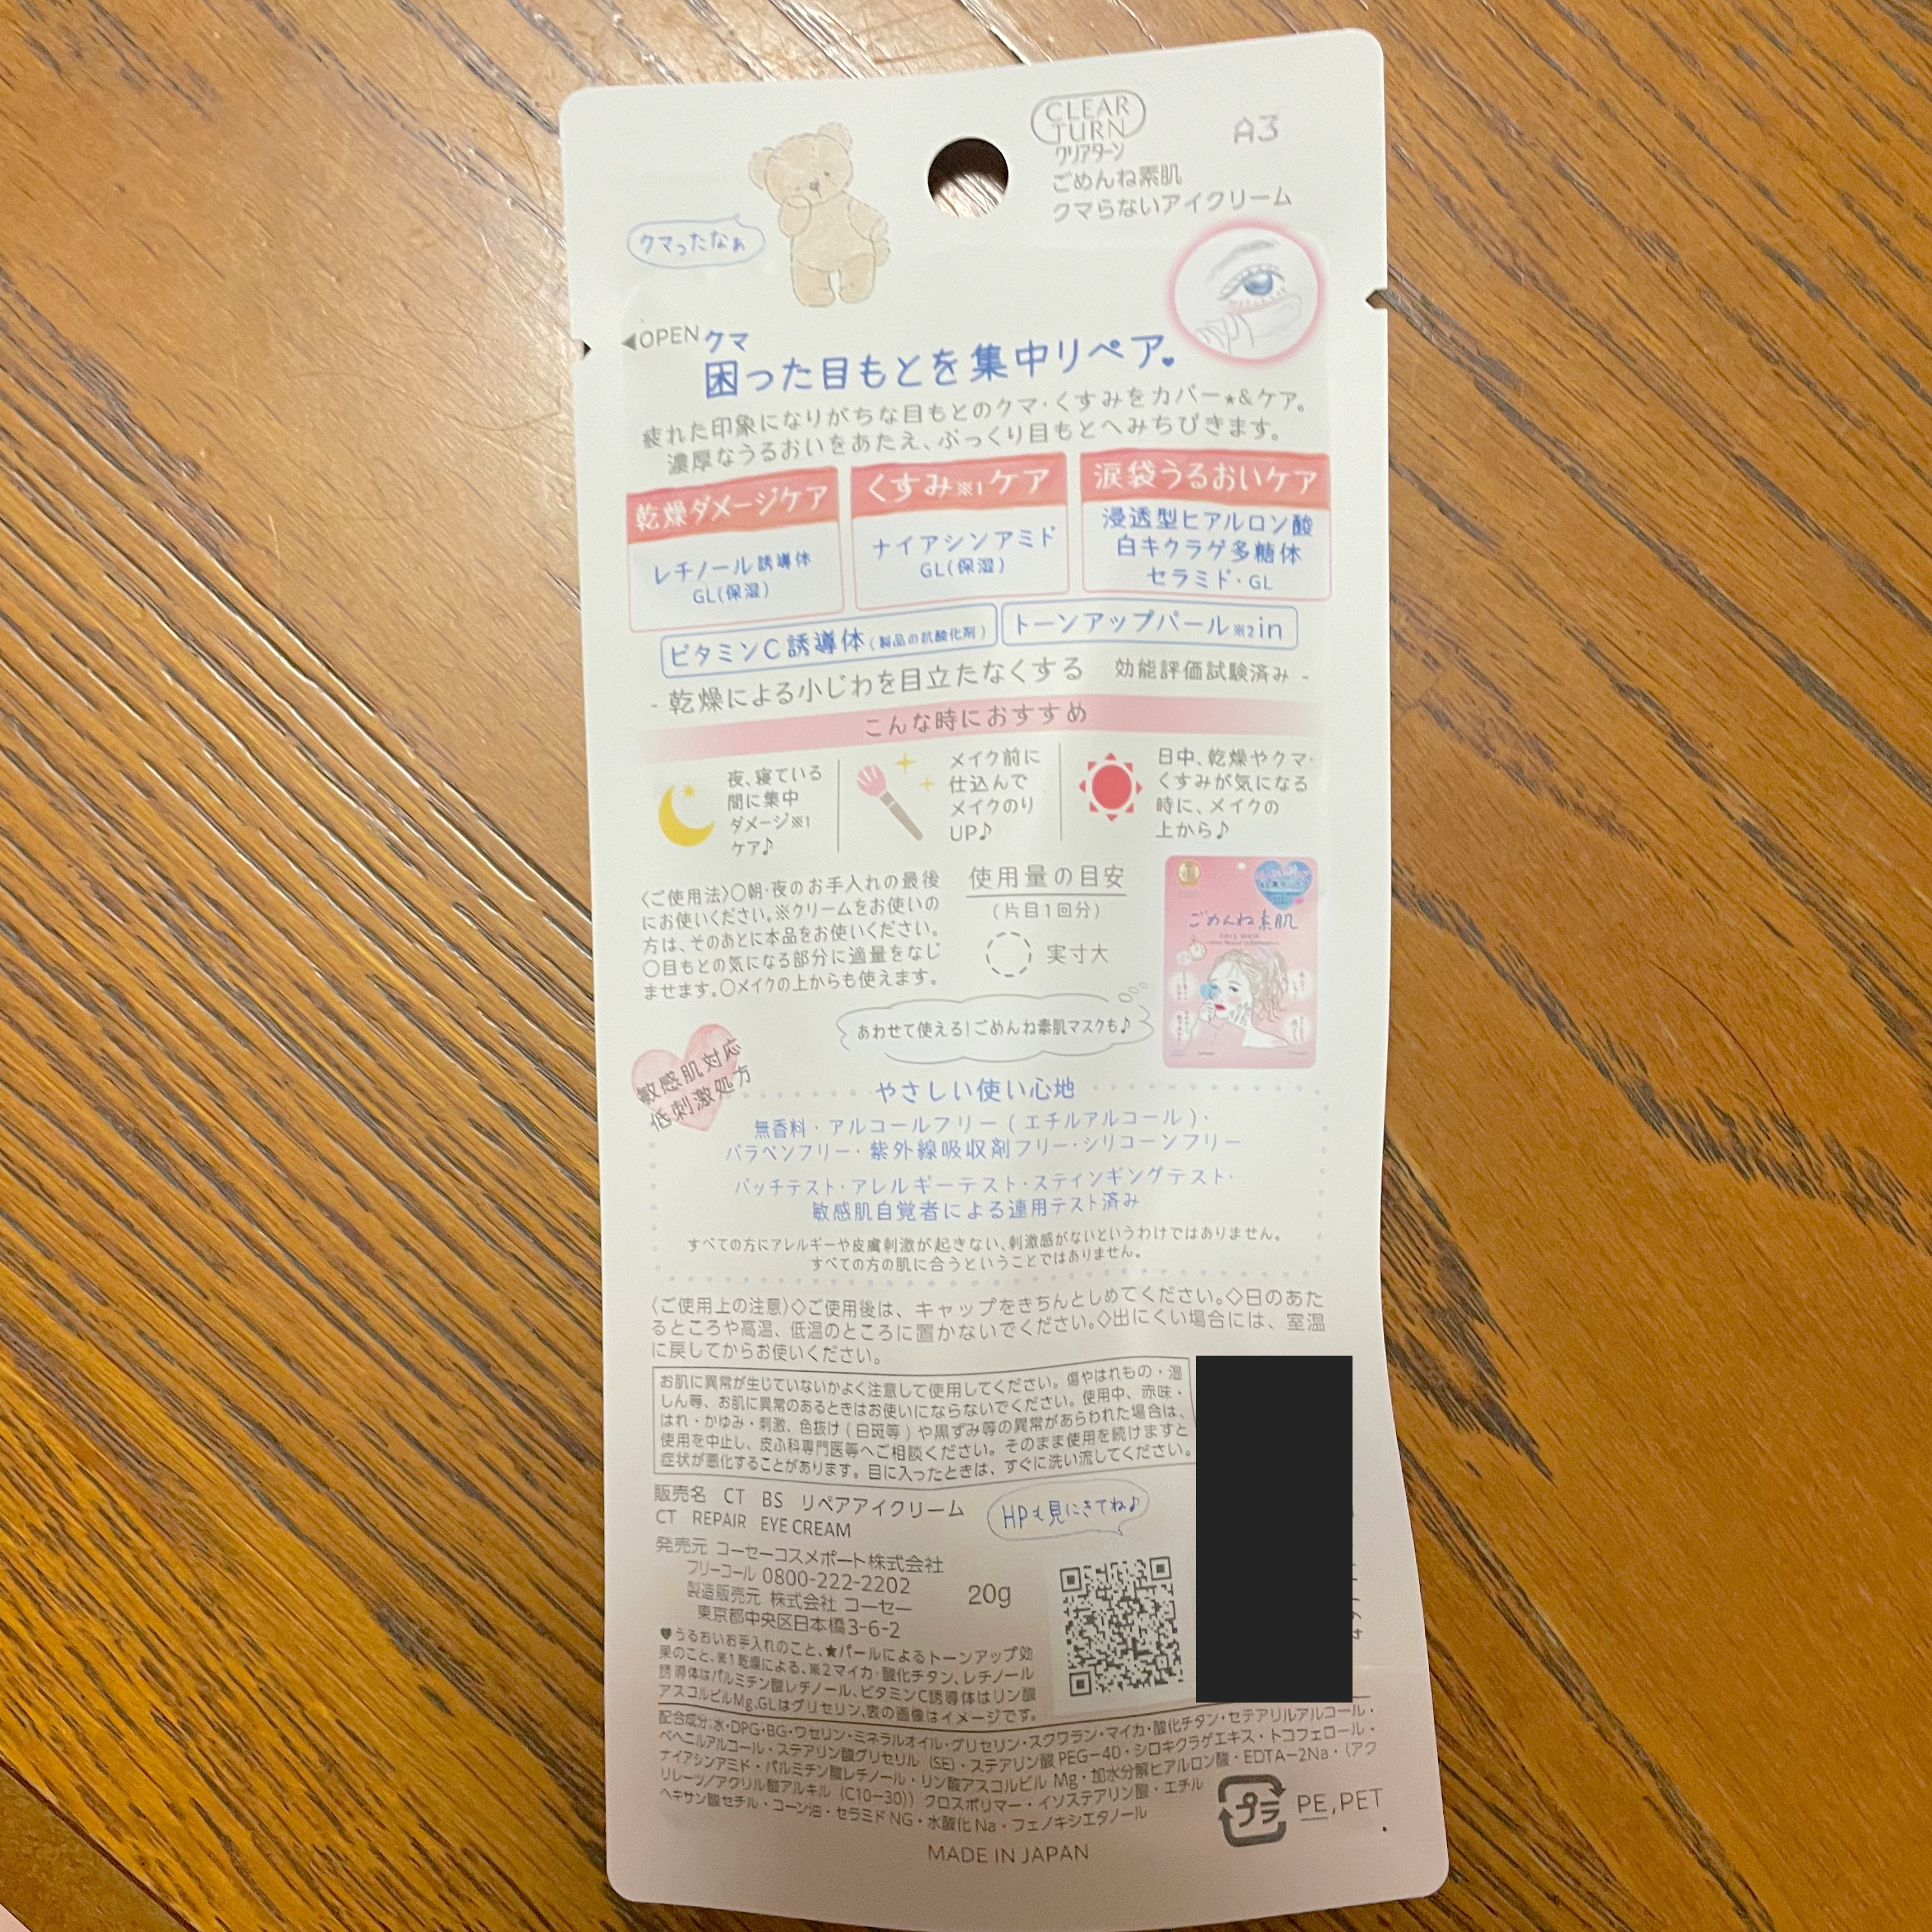 CLEAR
TURN
クリアターン
A3
ごめんね素肌
クマらないアイクリーム
クマったなぁ
◀OPEN
クマ
困った目もとを集中リペア♥
疲れた印象になりがちな目もとのクマ・くすみをカバー★&ケア。
濃厚なうるおいをあたえ、ぷっくり目もとへみちびきます。
乾燥ダメージケア
レチノール誘導体
GL(保湿)
くすみ※1ケア
ナイアシンアミド
GL(保湿)
涙袋うるおいケア
浸透型ヒアルロン酸
白キクラゲ多糖体
セラミド・GL
ビタミンC誘導体(製品の抗酸化剤)
トーンアップパール※2in
- 乾燥による小じわを目立たなくする 効能評価試験済み -
こんな時におすすめ
夜、寝ている
間に集中
ダメージ※1
ケア♪
メイク前に
仕込んで
メイクのり
UP♪
日中、乾燥やクマ・
くすみが気になる
時に、メイクの
上から♪
〈ご使用法〉○朝・夜のお手入れの最後
にお使いください。※クリームをお使いの
方は、そのあとに本品をお使いください。
○目もとの気になる部分に適量をなじ
ませます。○メイクの上からも使えます。
使用量の目安
(片目1回分)
実寸大
ごめんね素肌
あわせて使える!ごめんね素肌マスクも♪
敏感肌対応
低刺激処方
やさしい使い心地
無香料・アルコールフリー(エチルアルコール)・
パラベンフリー・紫外線吸収剤フリー・シリコーンフリー
パッチテスト・アレルギーテスト・スティンギングテスト・
敏感肌自覚者による連用テスト済み
すべての方にアレルギーや皮膚刺激が起きない、刺激感がないというわけではありません。
すべての方の肌に合うということではありません。
〈ご使用上の注意〉◇ご使用後は、キャップをきちんとしめてください。◇日のあた
るところや高温、低温のところに置かないでください。◇出にくい場合には、室温
に戻してからお使いください。
お肌に異常が生じていないかよく注意して使用してください。傷やはれもの・湿
しん等、お肌に異常のあるときはお使いにならないでください。使用中、赤味・
はれ・かゆみ・刺激、色抜け(白斑等)や黒ずみ等の異常があらわれた場合は、
使用を中止し、皮ふ科専門医等へご相談ください。そのまま使用を続けますと
症状が悪化することがあります。目に入ったときは、すぐに洗い流してください。
販売名 CT BS リペアアイクリーム
CT REPAIR EYE CREAM
HPも見にきてね♪
発売元 コーセーコスメポート株式会社
フリーコール 0800-222-2202
製造販売元 株式会社 コーセー
東京都中央区日本橋3-6-2
20g
♥うるおいお手入れのこと、★パールによるトーンアップ効
果のこと、※1乾燥による、※2マイカ・酸化チタン、レチノール
誘導体はパルミチン酸レチノール、ビタミンC誘導体はリン酸
アスコルビルMg、GLはグリセリン、表の画像はイメージです。
配合成分:水・DPG・BG・ワセリン・ミネラルオイル・グリセリン・スクワラン・マイカ・酸化チタン・セテアリルアルコール・
ベヘニルアルコール・ステアリン酸グリセリル(SE)・ステアリン酸PEG-40・シロキクラゲエキス・トコフェロール・
ナイアシンアミド・パルミチン酸レチノール・リン酸アスコルビル Mg・加水分解ヒアルロン酸・EDTA-2Na・(アク
リレーツ/アクリル酸アルキル(C10-30))クロスポリマー・イソステアリン酸・エチル
ヘキサン酸セチル・コーン油・セラミドNG・水酸化Na・フェノキシエタノール
プラ
PE,PET
MADE IN JAPAN